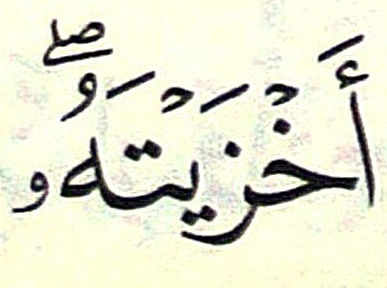 أَخْزَيْتَهُۥۖ